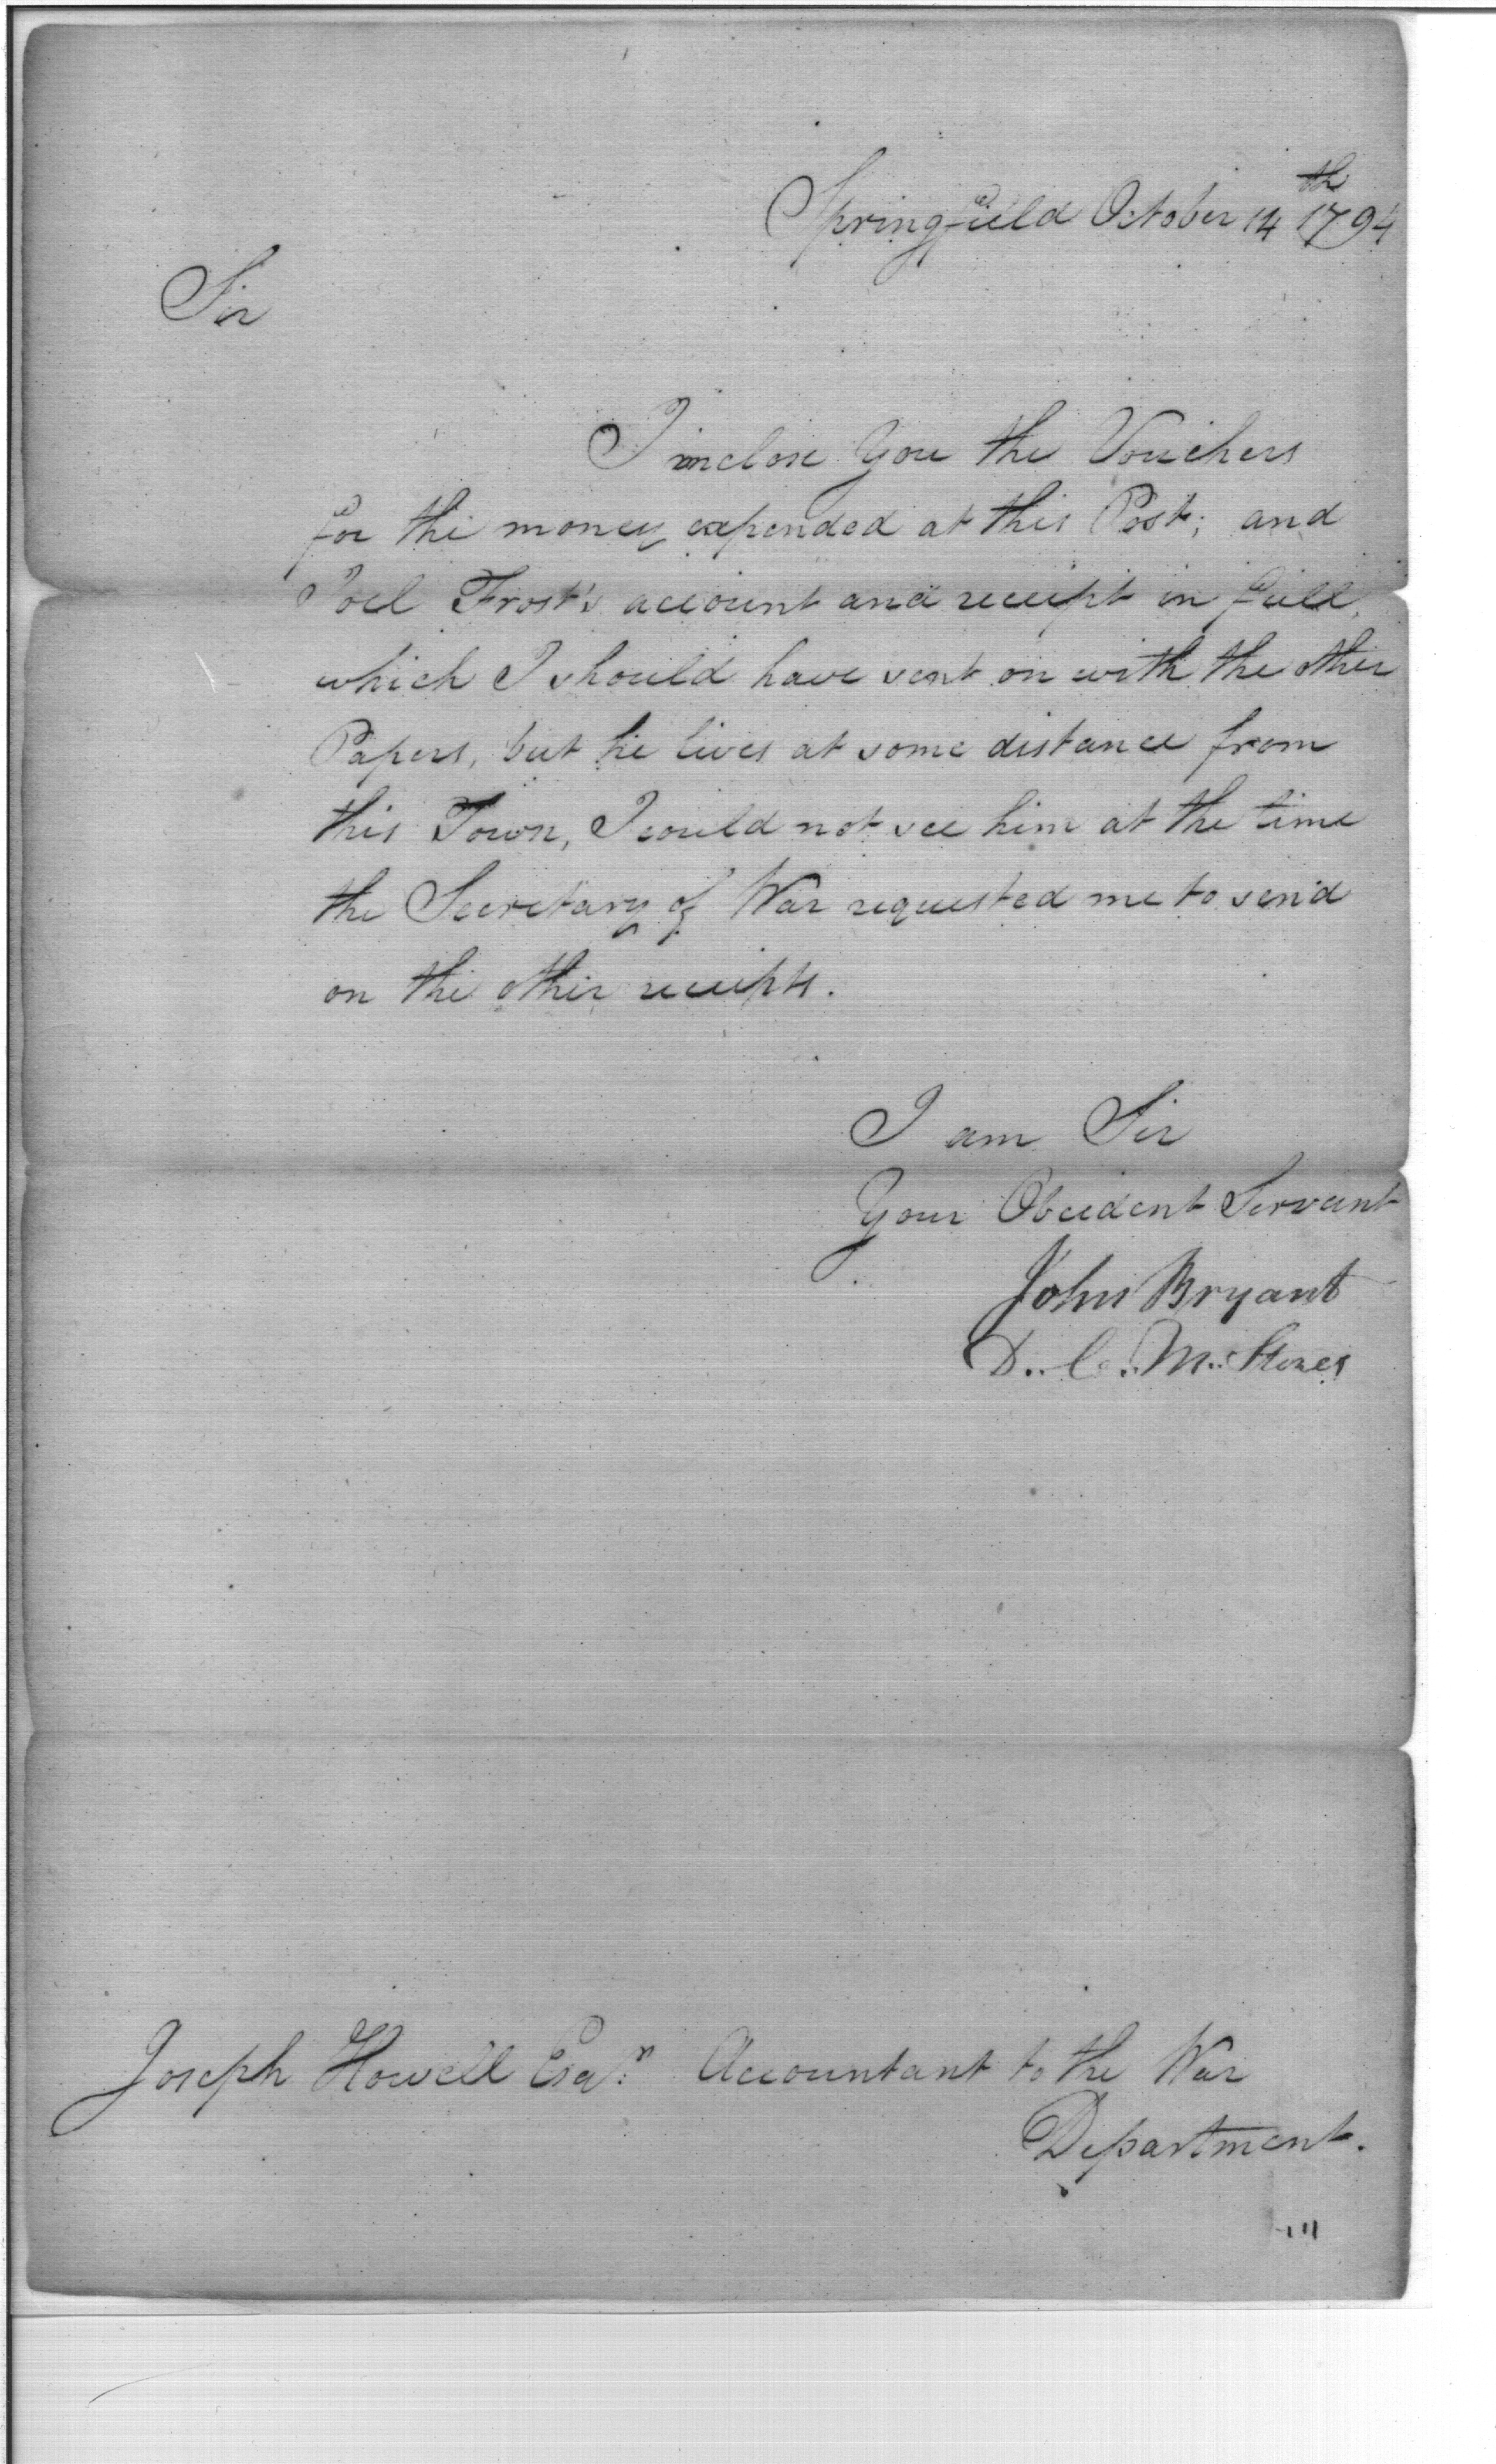 Springfield October 14th 1794
Sir
I inclose You the Vouchers
for the money expended at this Post; and
Joel Frost's account and receipt in full,
which I should have sent on with the other
Papers, but he lives at some distance from
this Town, I could not see him at the time
the Secretary of War requested me to send
on the other receipts.
I am Sir
Your Obeident Servant
John Bryant
D.. C.. M.. Stores
Joseph Howell Esqr. Accountant to the War
Department.